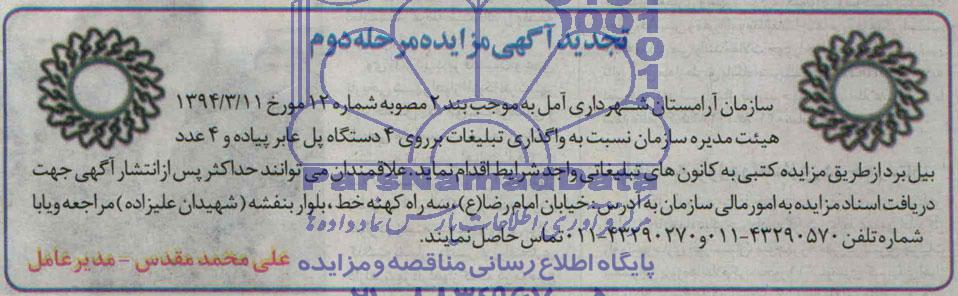 تجدید آگهی مزایده مرحله دوم
سازمان آرامستان شهرداری آمل به موجب بند ۲ مصوبه شماره ۱۲ مورخ ۱۳۹۴/۳/۱۱
هیئت مدیره سازمان نسبت به واگذاری تبلیغات برروی ۴ دستگاه پل عابر پیاده و ۴ عدد
بیل برد از طریق مزایده کتبی به کانون های تبلیغاتی واجد شرایط اقدام نماید. علاقمندان می توانند حداکثر پس از انتشار آگهی جهت
ParsNamadData
دریافت اسناد مزایده به امور مالی سازمان به آدرس: خیابان امام رضا(ع)، سه راه کهنه خط، بلوار بنفشه (شهیدان علیزاده) مراجعه ویا با
شماره تلفن ۴۳۲۹۰۵۷۰-۰۱۱ و ۴۳۲۹۰۲۷۰-۰۱۱ تماس حاصل نمایند.
پایگاه اطلاع رسانی مناقصه و مزایده
علی محمد مقدس - مدیر عامل